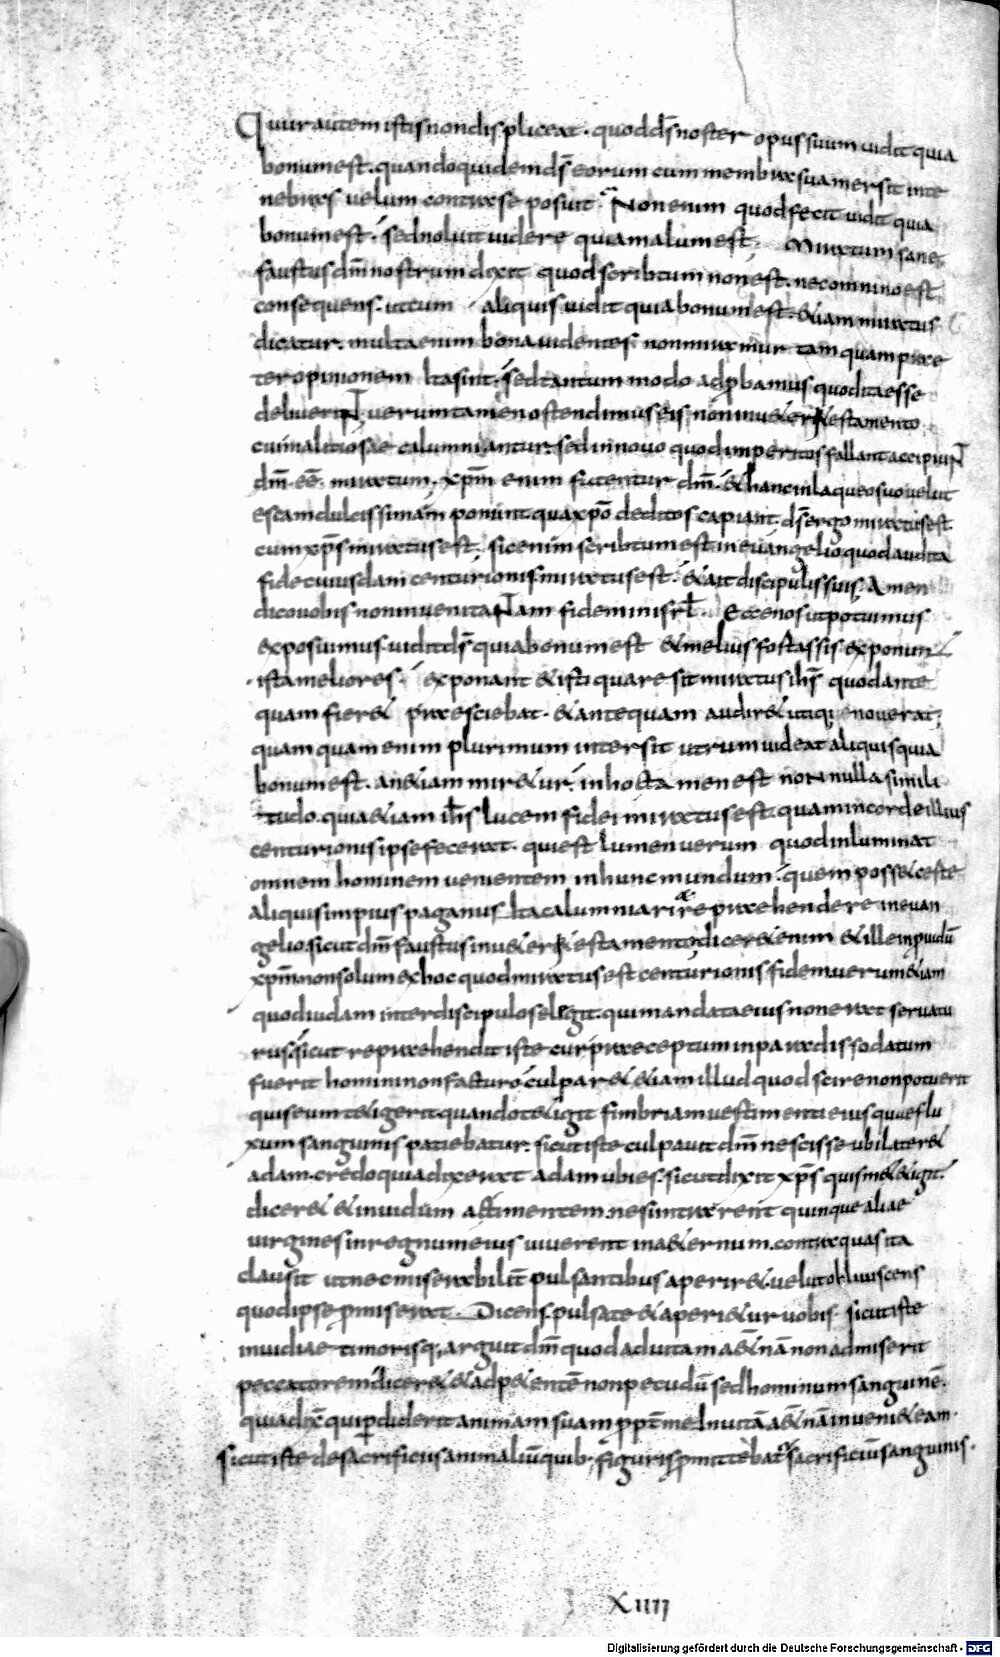 Quur autem istis non displiceat. quod ds̄ noster opus suum uidit quia
bonum est. quando quidem ds̄ eorum cum membra sua mersit inte
nebras uelum contra se posuit. Non enim quod fecit uidit quia
bonum est. sed noluit uidere quia malum est; Miratum sane
faustus dm̄ nostrum dixit quod scribtum non est. nec omnino est
consequens. ut cum aliquis uidit quia bonum est. etiam miratus
dicatur. multa enim bona uidentes non miramur tam quam prae
ter opinionem ita sint. sed tantum modo adprobamus quod ita esse
debuerint uerum tamen ostendimus eis non in uetere testamento
cui malitiosae calumniantur. sed in nouo quod imperitos fallant accipiunt
dm̄ eē miratum. xp̄m enim fatentur dm̄. et hanc in laqueo suo uelut
escam dulcissimam ponunt. qua xp̄o deditos capiant. ds̄ ergo miratus est
cum xp̄s miratus est; sic enim scribtum est in euangelio quod audita
fide cuiusdam centurionis miratus est. et ait discipulis suis. Amen
dico uobis non inueni tantam fidem in isrl̄. Ecce nos ut potuimus
exposuimus. uidit ds̄ quia bonum est et melius fortassis exponunt
ista meliores. exponant et isti quare sit miratus ihs̄ quod ante
quam fieret praesciebat. et antequam audiret utique nouerat;
quam quam enim plurimum intersit utrum uideat aliquis quia
bonum est. an etiam miretur. in hoc tamen est non nulla simili
tudo. quia etiam ihs̄ lucem fidei miratus est. quam in corde illius
centurionis ipse fecerat. qui est lumen uerum quod inluminat
omnem hominem uenientem in hunc mundum. quem posset certe
aliquis impius paganus ita calumniari et repraehendere in euan
gelio sicut dm̄ faustus in uetere testamento. diceret enim et ille inprouidū
xp̄m non solum ex hoc quod miratus est centurionis fidem uerum etiam
quod iudam inter discipulos elegit. qui mandata eius non erat seruatu
rus. sicut repraehendit iste cur praeceptum in paradisso datum
fuerit homini non facturo. culparet etiam illud quod scire non potuerit
quis eum tetigerit. quando tetigit fimbriam uestimenti eius quae flu
xum sanguinis patiebatur. sicut iste culpauit dm̄ nescisse ubi lateret
adam. credo quia dixerat adam ubi es. sicut dixit xp̄s quis me tetigit.
diceret et inuidum ac timentem. ne si intrarent quinque aliae
uirgines in regnum eius uiuerent in aeternum. contra quas ita
clausit ut nec miserabilit̄ pulsantibus aperiret. uelut obliuiscens
quod ipse promiserat. Dicens. pulsate et aperietur uobis. sicut iste
inuidiae timorisq; arguit dm̄ quod ad uitam aet̄nā non admiserit
peccatorem. diceret et adpetentē non pecudū sed hominum sanguinē.
quia dix̄ qui perdiderit animam suam propt̄ me. In uitā aet̄nā inueniet eam.
sicut iste de sacrificiis animaliū quib. figuris promittebat̄ sacrificiū sanguinis.
XIIII
Digitalisierung gefördert durch die Deutsche Forschungsgemeinschaft - DFG